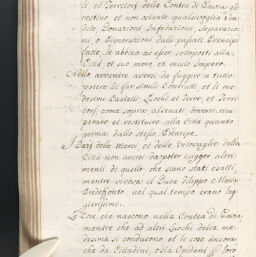 li, et Territorj della Contea di Pavia gli
restino, et non ostante qualsivoglia Ven
dite Donazioni Infeodazione, Separazio
ni, o Pignorazioni dalli passati Prencipi
fatte, le debbino ad esser sottoposti alla
Città et suo mero, et misto Impero.
Nello avvenire aversi da fuggire a tutto
potere di far simili Contratti, et li me
desimi Castelli, Luochi, et Terre, et Terri
torj come sopra alienati doversi ricu
perare et restituire alla Città quanto
prima dallo stesso Principe.
I Dazj delle Merci, et delle Vittovaglie della
Città non aversi da poter esigger altri
menti di quello che siano stati esatti
mentre viveva il Duca Filippo Maria
Predefonto nel qual tempo erano leg
gierissimi.
Le Cose che nascono nella Contea di Pavia
mentre che ad altri Luochi della me
desima si conducono et le cose ancora
che da Cittadini, ossia Opidani per loro